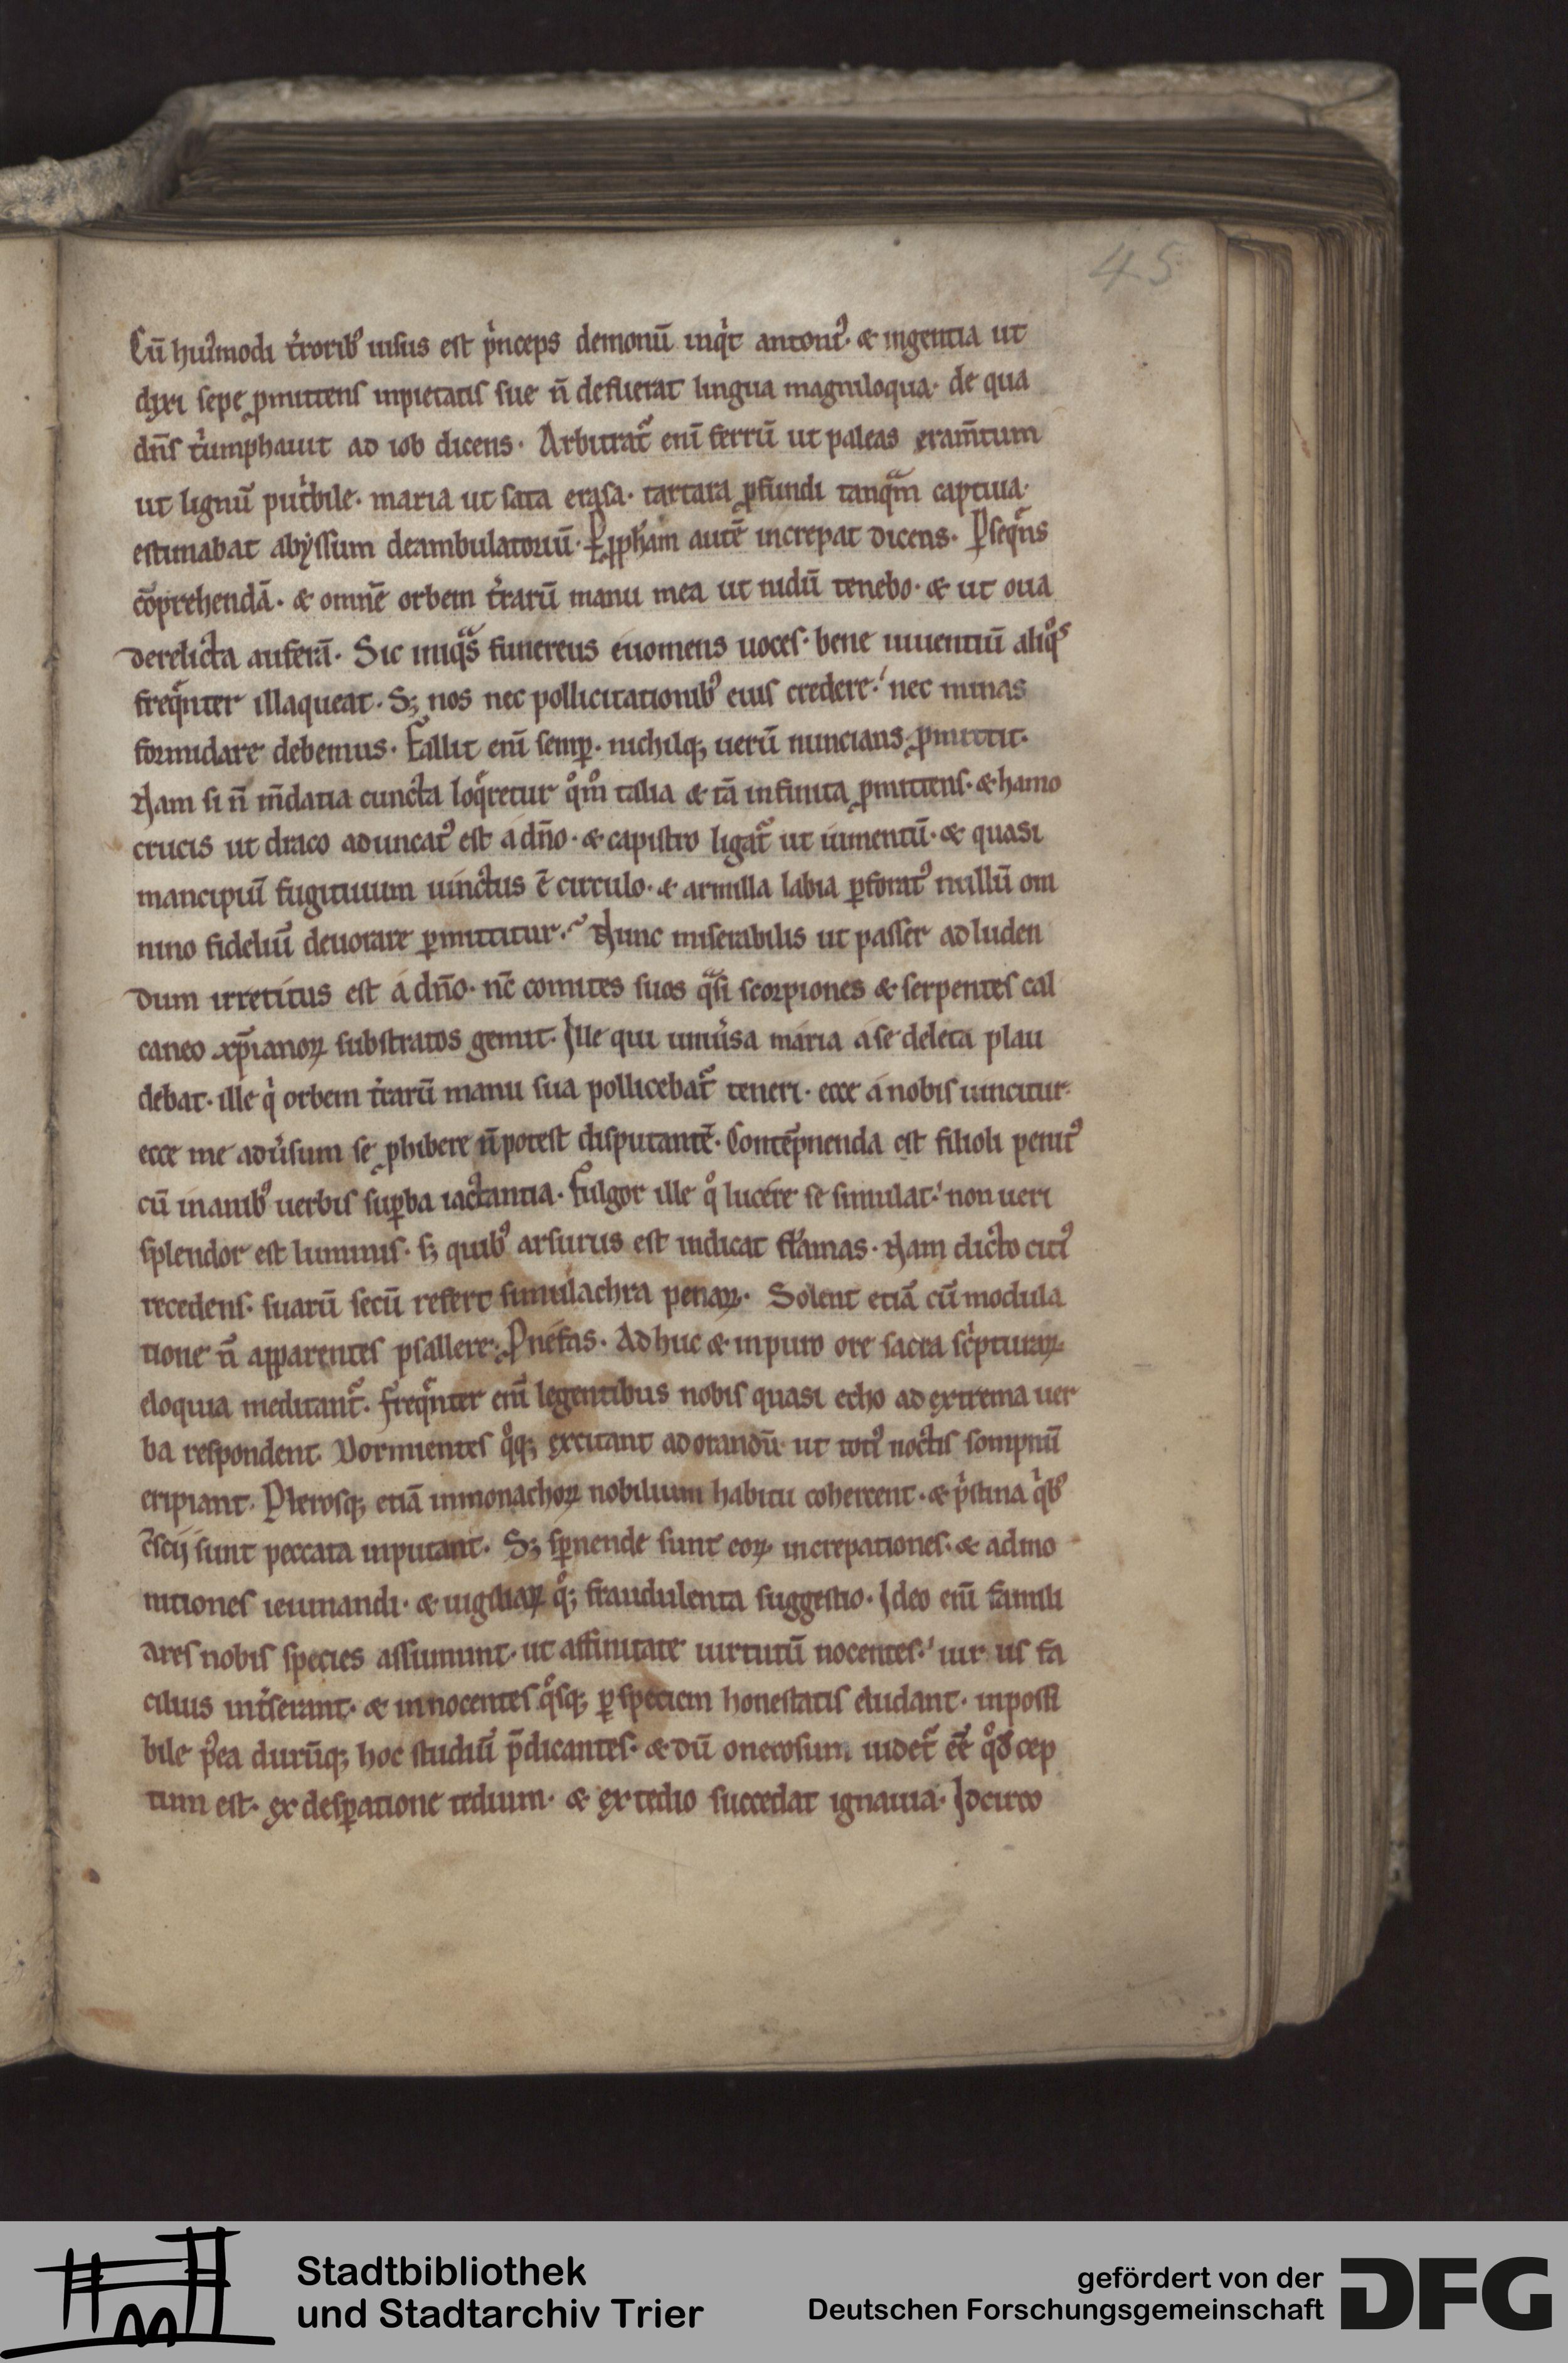 45
Cū hui᷒modi t̄rorib᷒ uisus est p̍nceps demonū inq̍t antoni᷒· & ingentia ut
dixi sepe ꝓmittens inpietatis sue n̄ defuerat lingua magniloqua· de qua
dn̄s t̍umphauit ad iob dicens· Arbitrat᷒ eni̅ ferrū ut paleas eram̄tum
ut lignū put̍bile· maria ut sata erasa· tartara ꝓfundi tanqᷓm captiua·
estimabat abyssum deambulatoriū· ꝑ ꝓph̄am autē increpat dicens· Ꝑseq̄ns
cōprehendā· & omnē orbem t̄rarū manu mea ut nidū tenebo· & ut oua
derelicta auferā· Sic iniqᷓs funereus euomens uoces· bene uiuentiū aliqͦs
freq̄nter illaqueat· Sꝫ nos nec pollicitationib᷒ eius credere· nec minas
formidare debemus· Fallit eni̅ semꝑ· nichilqꝫ uerū nuncians ꝓmittit·
Nam si n̄ m̄datia cuncta loq̄retur qͦmͦ talia & tā infinita ꝓmittens· & hamo
crucis ut draco aduncat᷒ est a dn̄o· & capistro ligat᷒ ut iumentū· & quasi
mancipiū fugitiuum uinctus ē circulo· & armilla labia ꝑforat᷒ nullū om
nino fideliū deuorare ꝑmittitur· Nunc miserabilis ut passer ad luden
dum irretitus est a dn̄o· nc̄ comites suos qᷓsi scorpiones & serpentes cal
caneo xp̄ianoꝝ substratos gemit· Ille qui uniu̍sa maria a se deleta plau
debat· ille q̍ orbem t̄rarū manu sua pollicebat᷒ teneri· ecce a nobis uincitur·
ecce me adu̍sum se ꝓhibere n̄ potest disputantē· Contēpnenda est filioli penit᷒
cū inanib᷒ uerbis suꝑba iactantia· Fulgor ille qͦ lucere se simulat· non ueri
splendor est luminis· sꝫ quib᷒ arsurus est indicat flāmas· Nam dicto citi᷒
recedens· suarū secū refert simulachra penaꝝ· Solent etiā cū modula
tione n̄ apparentes psallere· Ꝓ nefas· Ad huc & inpuro ore sacra sc̍pturaꝝ
eloquia meditant᷒· freq̄nter eni̅ legentibus nobis quasi echo ad extrema uer
ba respondent· Dormientes qͦqꝫ excitant ad orandū· ut toti᷒ noctis sompnū
eripiant· Plerosqꝫ etiā in monachoꝝ nobilium habitu cohercent· & p̍stina q̍b᷒
c̄scij sunt peccata inputant· Sꝫ sꝑnende sunt eoꝝ increpationes· & admo
nitiones ieiunandi· & uigiliaꝝ qͦqꝫ fraudulenta suggestio· Ideo eni̅ famili
ares nobis species assumunt· ut affinitate uirtutū nocentes· uirus fa
cilius int̍serant· & innocentes qͦsqꝫ ꝑ speciem honestatis eludant· inpossi
bile p̍ea durūqꝫ hoc studiū p̄dicantes· & dū onerosum uidet᷒ ee̅ qͦd cep
tum est· ex desꝑatione tedium· & ex tedio succedat ignauia· Idcirco
Stadtbibliothek
und Stadtarchiv Trier
gefördert von der
Deutschen Forschungsgemeinschaft
DFG